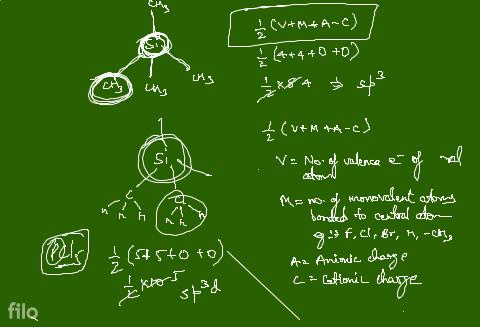 CH3
Si
CH3
CH3
CH3
1/2 (V+M+A-C)
1/2 (4+4+0+0)
1/2 × 8 4 ⇒ sp3
1/2 (V+M+A-C)
V = No. of valence e- of
atom
M = no. of monovalent atoms
bonded to central atom
F, Cl, Br, H, -CH3
A = Anionic charge
C = Cationic charge
Si
C
H H
C
H H
PCl5
1/2 (5+5+0+0)
1/2 × 10 5
sp3d
filo